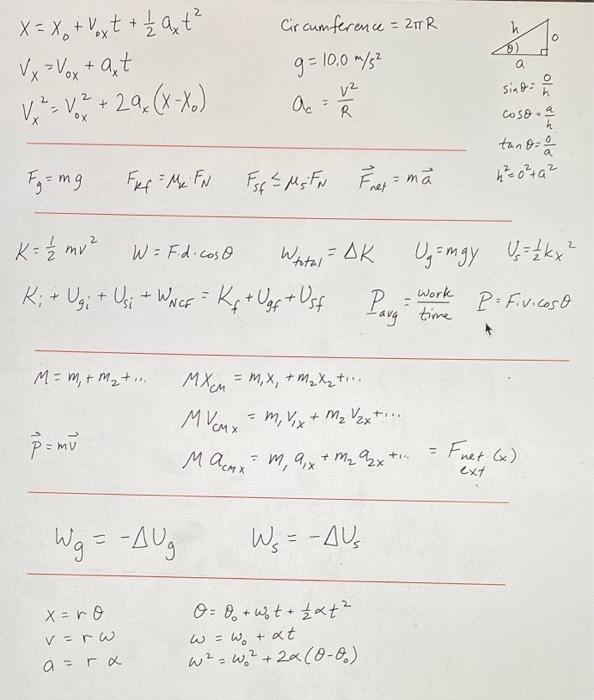 x = x₀ + v₀ₓt + ½ aₓt²
Circumference = 2πR
vₓ = v₀ₓ + aₓt
g = 10.0 m/s²
vₓ² = v₀ₓ² + 2aₓ(x-x₀)
a_c = v²/R
h
o
θ)
a
sinθ = o/h
cosθ = a/h
tanθ = o/a
h² = o² + a²
F_g = mg F_kf = μ_k·F_N F_sf ≤ μ_s·F_N F⃗_net = ma⃗
K = ½ mv² W = F·d·cosθ W_total = ΔK U_g = mgy U_s = ½kx²
K_i + U_gi + U_si + W_NCF = K_f + U_gf + U_sf P_avg = work/time P = F·v·cosθ
M = m₁ + m₂ + ... MX_CM = m₁x₁ + m₂x₂ + ...
MV_CMx = m₁v₁ₓ + m₂v₂ₓ + ...
p⃗ = mv⃗
Ma_CMx = m₁a₁ₓ + m₂a₂ₓ + ... = F_net ext (x)
W_g = -ΔU_g W_s = -ΔU_s
x = rθ θ = θ₀ + ω₀t + ½αt²
v = rω ω = ω₀ + αt
a = rα ω² = ω₀² + 2α(θ-θ₀)